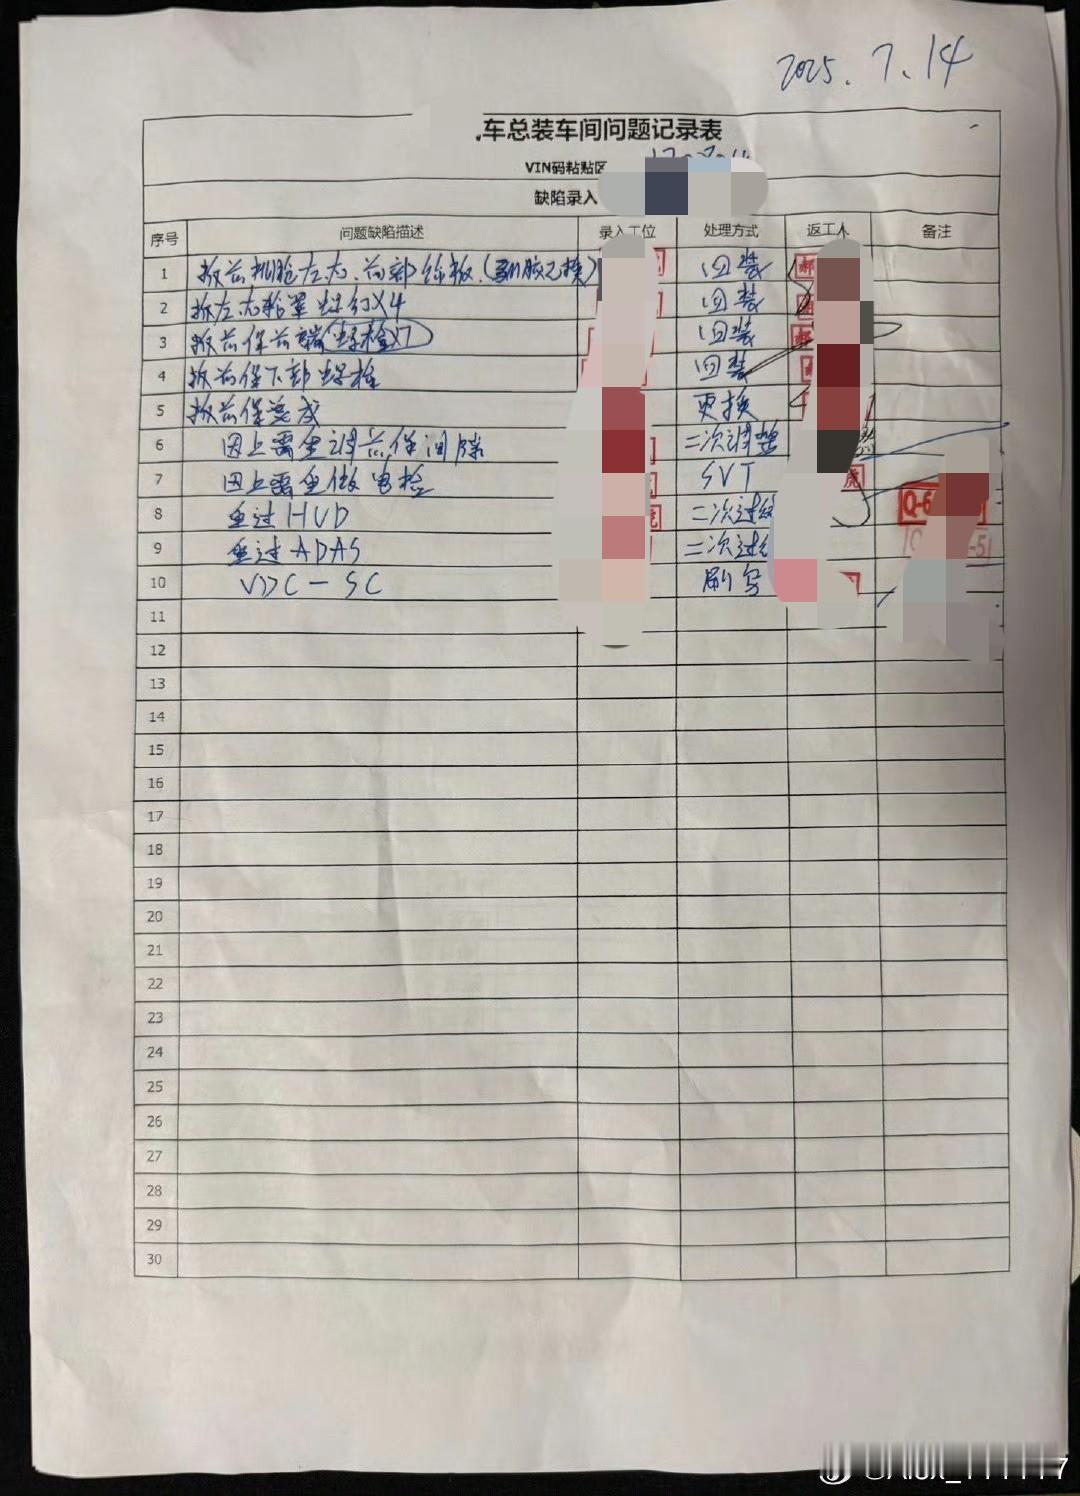 2025.7.14
车总装车间问题记录表
VIN码粘贴区
缺陷录入
序号 问题缺陷描述 录入工位 处理方式 返工人 备注
1 拆前机舱左右.前部饰板.( 已换) 回装
2 拆左右轮罩螺钉X4 回装
3 拆前保前端螺栓X7 回装
4 拆前保下部螺栓 回装
5 拆前保总成 更换
6 因上需重调前保间隙 二次调整
7 因上需重做电检 SVT 虎
8 重过HUD 二次过线 Q-6
9 重过ADAS 二次过 -5
10 VDC-SC 刷写
11
12
13
14
15
16
17
18
19
20
21
22
23
24
25
26
27
28
29
30